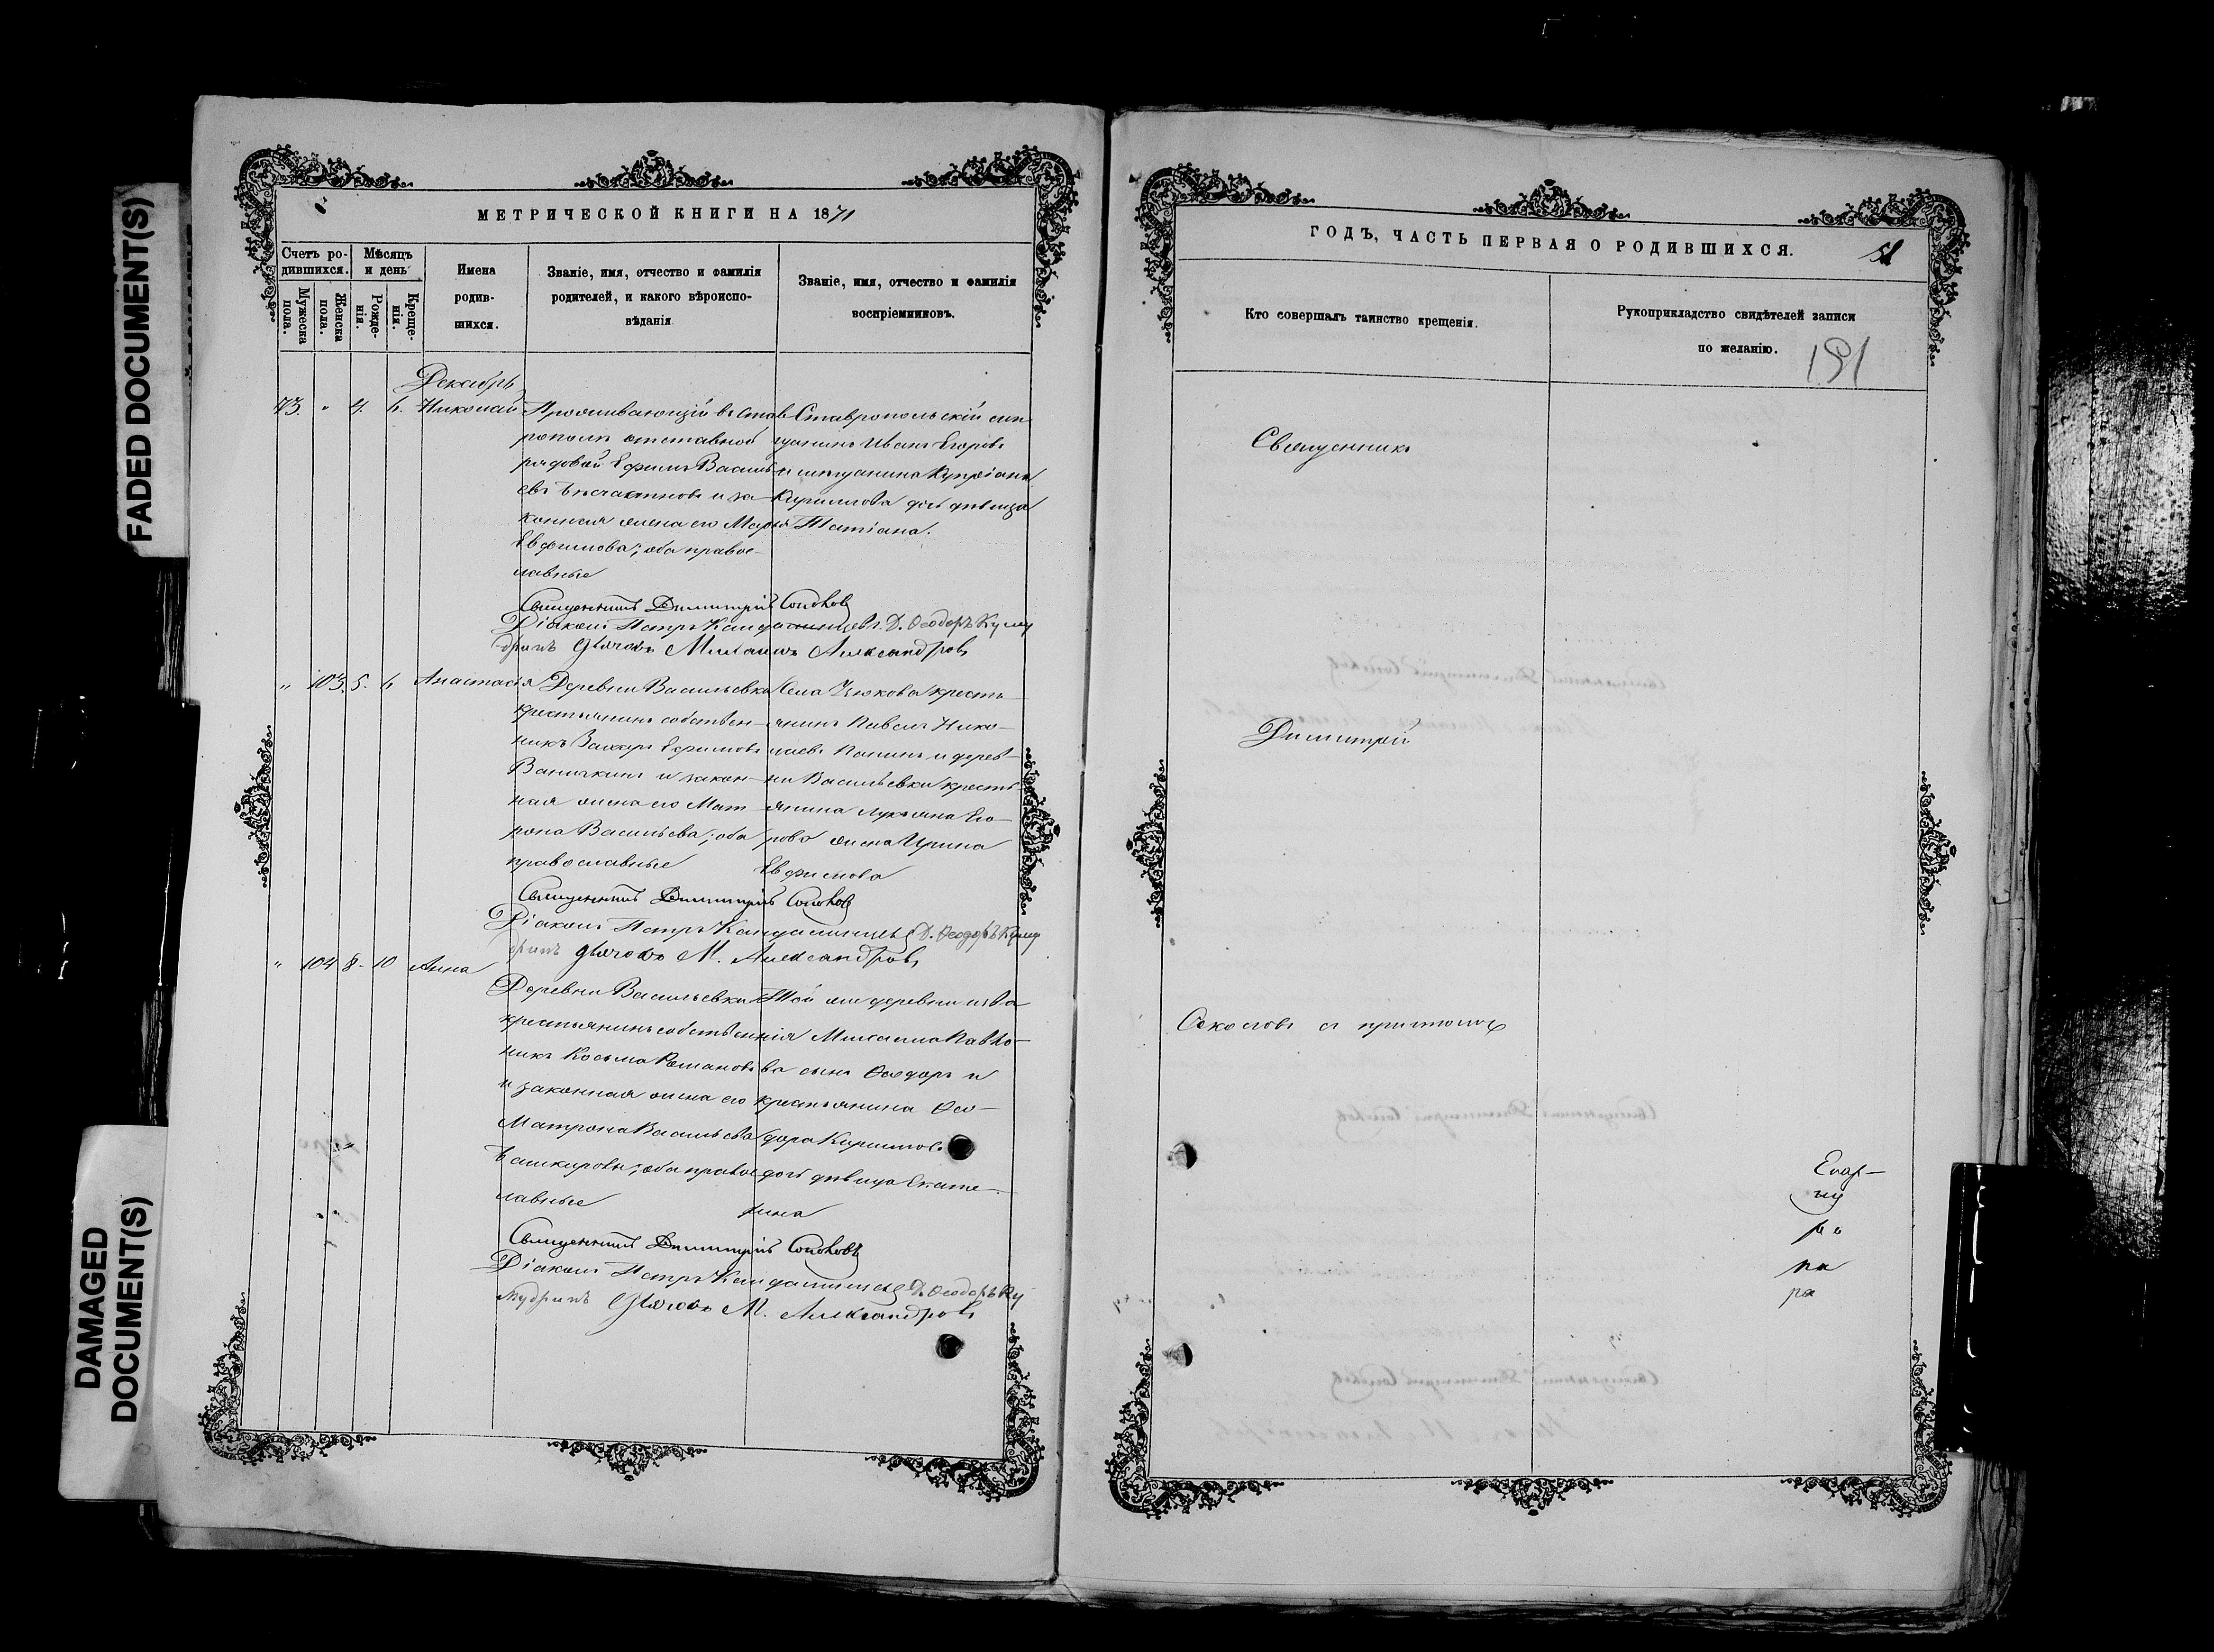 FADED DOCUMENT(S)
DAMAGED
DOCUMENT(S)
МЕТРИЧЕСКОЙ КНИГИ НА 1871
Счетъ ро-
дившихся.
Мужеска
пола.
Женска
пола.
Мѣсяцъ
и день
Рожде-
нія.
Креще-
нія.
Имена
родив-
шихся.
Званіе, имя, отчество и фамилія
родителей, и какого вѣроиспо-
вѣданія
Званіе, имя, отчество и фамилія
воспріемниковъ.
Декабрь
73. " 4. 6. Николай
Проживающій въ Став-
рополѣ отставной
рядовой Ефимъ Василь-
евъ и за-
конная жена его Марья
Евфимова; оба право-
славные
Ставропольскій мѣ-
щанинъ Иванъ Егоровъ
и мѣщанина Купріана
Кириллова дочь дѣвица
Татіана.
Священникъ Димитрій Соколовъ
Діаконъ Петръ Д. Ѳеодоръ Куму
дринъ Дьячокъ Михаилъ Александровъ
" 103. 5. 6. Анастасія
Деревни Васильевки
крестьянинъ собствен-
никъ Захаръ Ефимовъ
Ванюкинъ и закон-
ная жена его Мат-
рона Васильева; оба
православные
Села Узюкова кресть-
янинъ Павелъ Нико-
лаевъ Панинъ и дерев-
ни Васильевки кресть-
янина Лукьяна Его-
рова жена Ирина
Евфимова
Священникъ Димитрій Соколовъ
Діаконъ Петръ Д. Ѳеодоръ Куму
дринъ Дьячокъ М. Александровъ
" 104 8. 10 Анна
Деревни Васильевки
крестьянинъ собствен-
никъ Косьма Романовъ
и законная жена его
Матрона Васильева
Башкировы; оба право-
славные
Той же деревни
Михаила Павло-
ва сынъ Ѳеодоръ и
крестьянина Ѳео-
дора Кирилло
дочь дѣвица Екате-
рина
Священникъ Димитрій Соколовъ
Діаконъ Петръ Д. Ѳеодоръ Ку
мудринъ Дьячокъ М. Александровъ
ГОДЪ, ЧАСТЬ ПЕРВАЯ О РОДИВШИХСЯ.
51
Кто совершалъ таинство крещенія.
Рукоприкладство свидѣтелей записи
по желанію.
191
Священникъ
Димитрій
Соколовъ съ причтомъ
ра